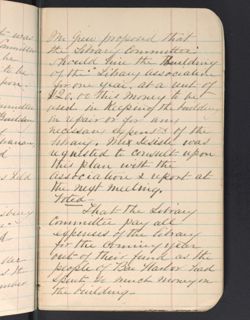 was
be
Mr Grew proposed that
the Library Committee
should hire the Building
of the "Library association
for one year, at a rent of
this money to be
used in keeping the building
in repair or for any
necessary expenses of the
library. was
requested to consult upon
this plan with the
association & report at
the next meeting.
Voted
That the Library
Committee pay all
expenses of the library
for the coming year
out of their fund as the
people of Bar Harbor had
spent so much money on
the building.